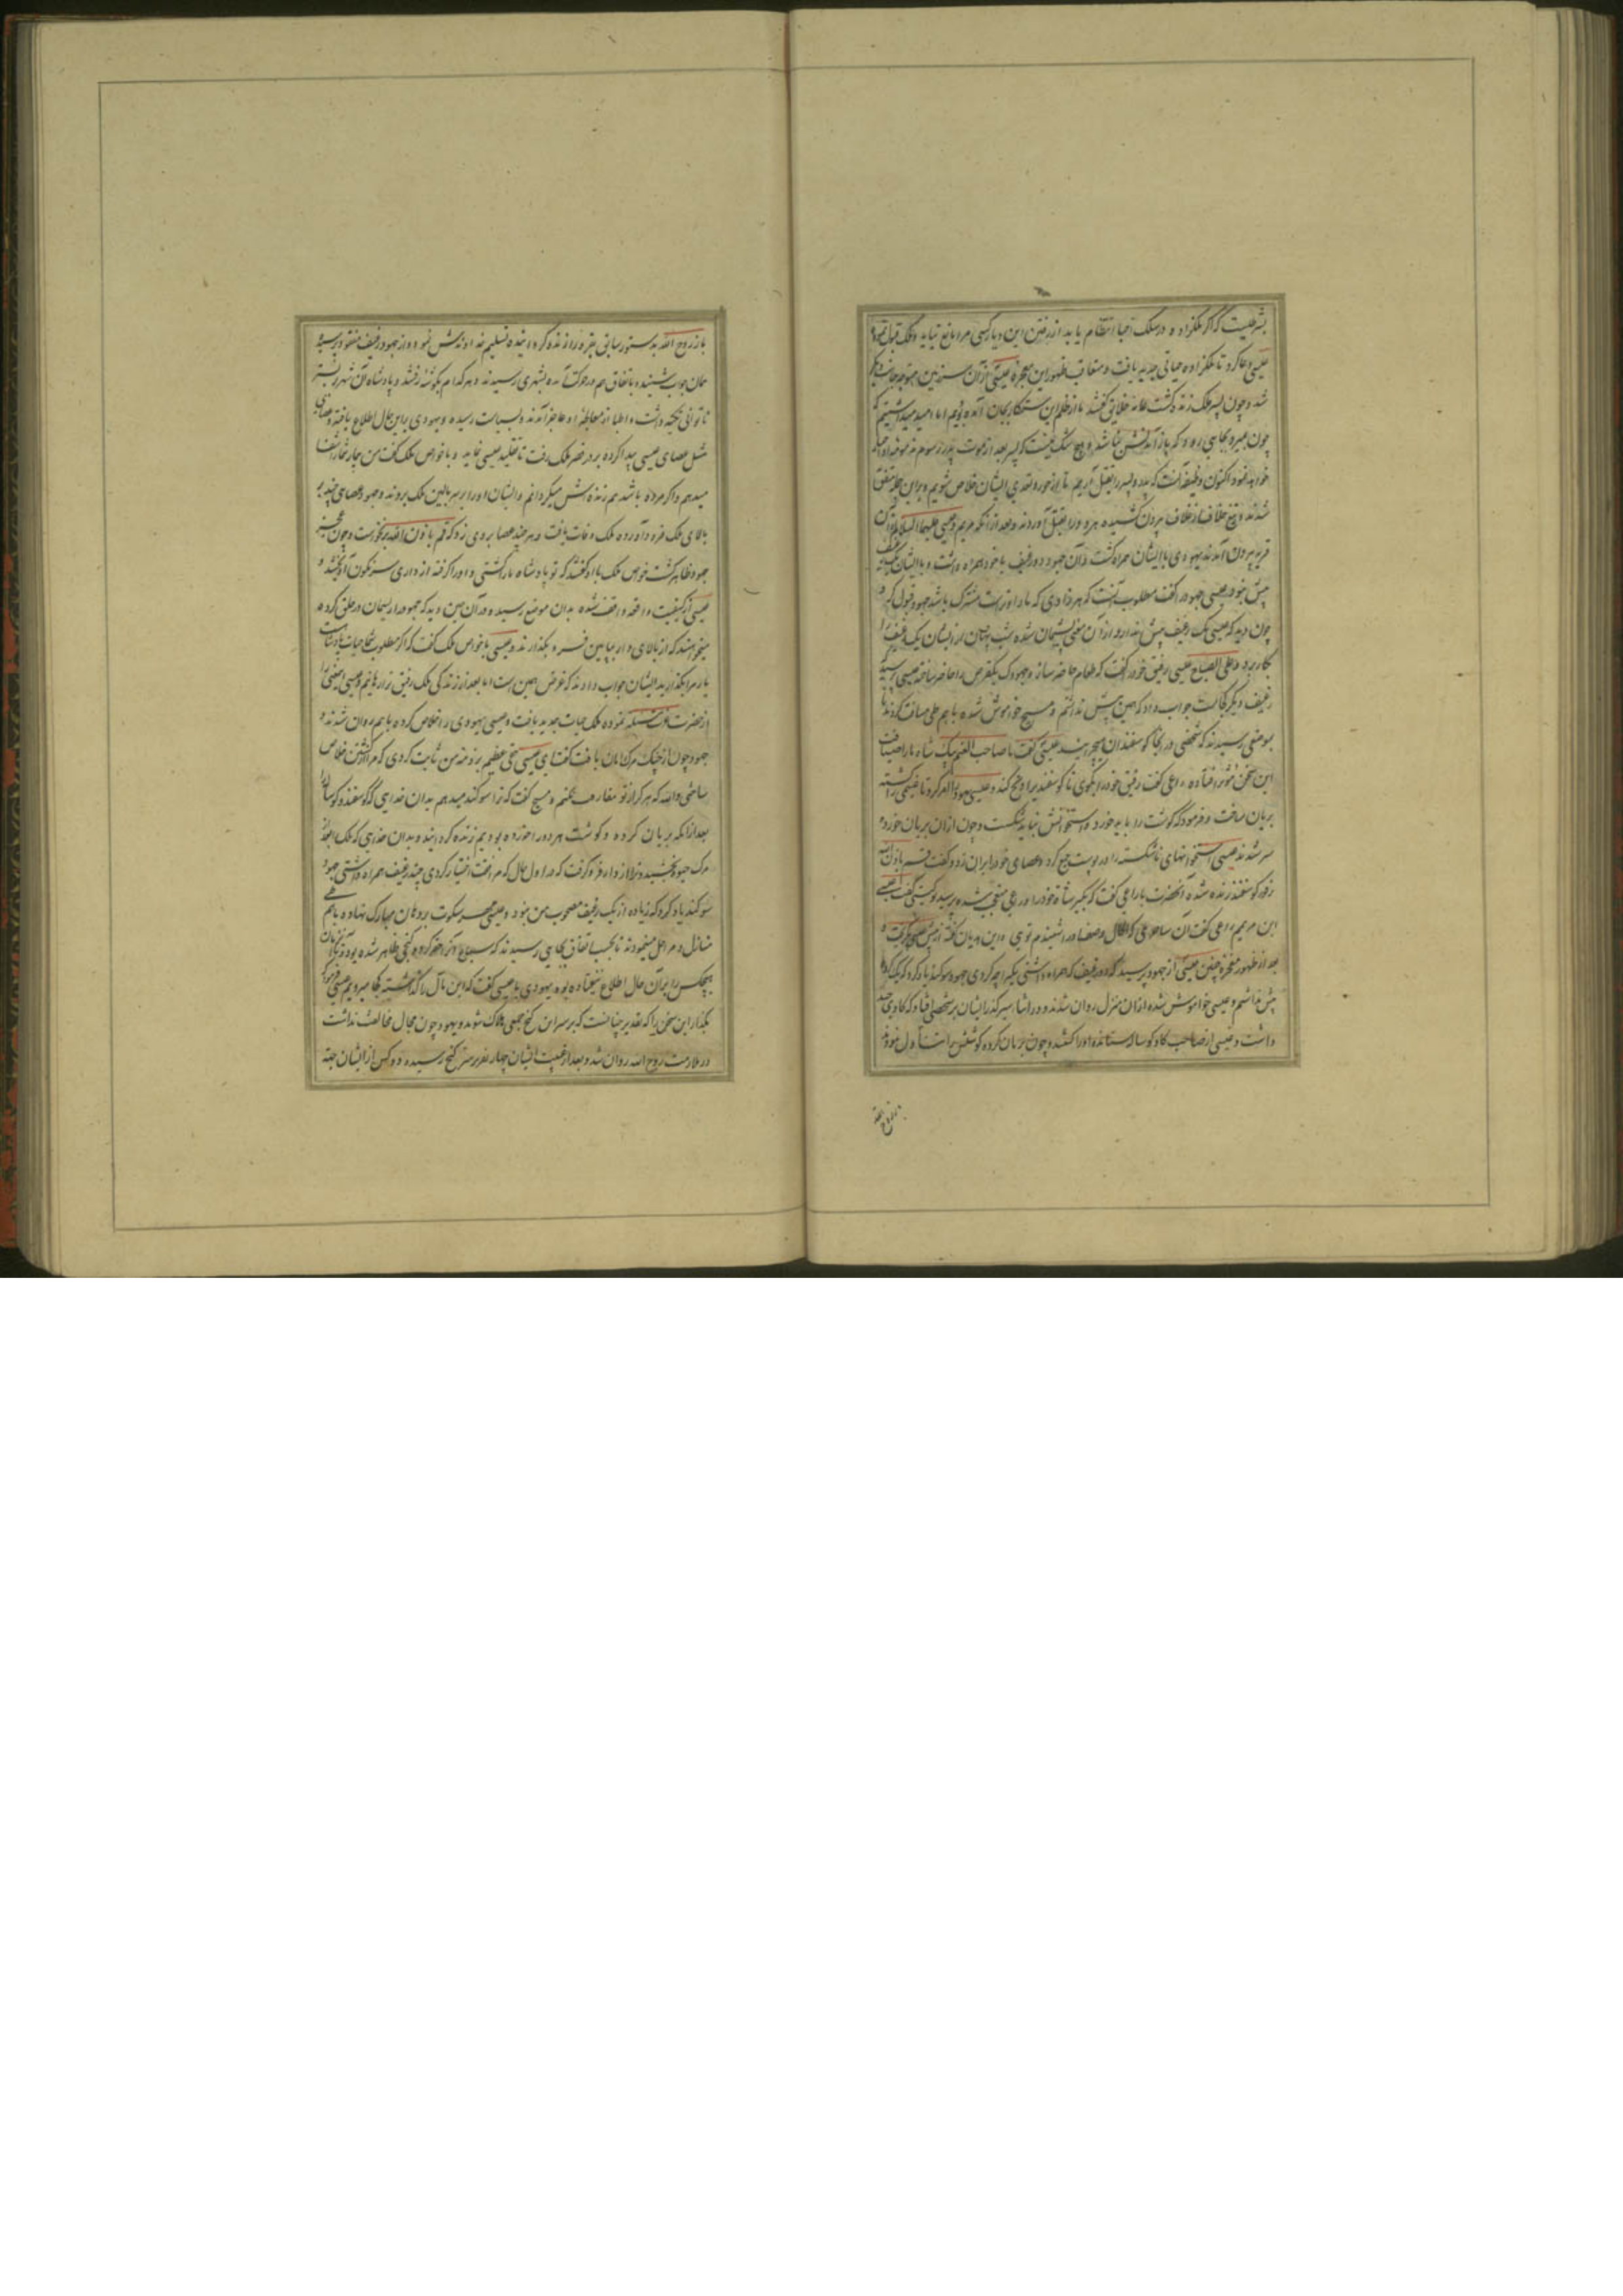 بشرطیست که اگر ملکزاده در سلک احیا انتظام یابد از رفتن این دیار کسی مرا مانع نیاید و ملک قبول نمود
عیسی دعا کرد تا ملکزاده حیاتی جدید یافت و متعاقب ظهور این معجزه عیسی از آن سرزمین متوجه جانب دیگر
شد و چون پسر ملک زنده گشت عامه خلایق گفتند ما از ظلم این ستمکار بجان آمده بودیم اما امید میداشتیم که
چون بمیرد بجایی رود که باز آمدنش نباشد و هیچ شک نیست که پسر بعد از موت پدر رسوم مذمومه او احیا
خواهد نمود اکنون وظیفه آنست که پدر و پسر را بقتل آریم تا از جور و تعدی ایشان خلاص شویم و براین جمله متفق
شدند و تیغ خلاف از غلاف بیرون کشیده هر دو را بقتل آوردند و بعد از آنکه مریم و عیسی علیهما السلام از آن
قریه بیرون آمدند یهودی با ایشان همراه گشت و آن جهود دو رغیف با خود همراه داشت و با ایشان یک رغیف
بیش نبود عیسی جهود را گفت مطلوب آنست که هر زادی که ما را و تراست مشترک باشد جهود قبول کرد و
چون دید که عیسی یک رغیف بیش ندارد از آن معنی پشیمان شده شب پنهان از ایشان یک رغیف را
بکار برد و علی الصباح عیسی رفیق خود را گفت که طعام حاضر ساز و جهودک یکقرص را حاضر ساخته عیسی پرسید که
رغیف دیگر کجاست جواب داد که همین بیش نداشتم و مسیح خواموش شده باهم طی مسافت کردند تا
بموضعی رسیدند که شخصی در آنجا گوسفندان میچرانید عیسی گفت یا صاحب الغنم بیک شاه ما را ضیافت
این سخن مؤثر افتاده راعی گفت رفیق خود را بگوی تا گوسفندیرا ذبح کند و عیسی یهود را امر کرد تا غنمی را کشته
بریان ساخت و فرمود که گوشت را باید خورد و استخوانش نباید شکست و چون از آن بریان خورده
سیر شدند عیسی استخوانهای ناشکسته را در پوست جمع کرد و عصای خود را بر آن زد و گفت قم باذن الله
فی الفور گوسفند زنده شده آنحضرت با راعی گفت که بگیر شاة خود را و راعی متعجب شده پرسید تو کیستی گفت عیسی
ابن مریمم راعی گفت آن ساحر
بعد از ظهور معجزه چنین عیسی از جهود پرسید که دو رغیف که همراه داشتی یکیرا چه کردی جهود سوگند یاد کرد که یک گرده
بیش نداشتم و عیسی خواموش شده از آن منزل روان شدند و در اثنا سیر گذر ایشان بر شخصی افتاد که گاوی چند
داشت و عیسی از صاحب گاو گوساله ستانده او را کشتند و چون بریان کرده گوشتش را تناول نمودند
باز روح الله
باز روح الله بدستور سابق بقره را زنده گردانیده تسلیم خداوندش نمود و از جهود رغیف مفقود پرسیده
همان جواب شنید و باتفاق هم در حرکت آمده بشهری رسیدند و هر کدام بگوشه رفتند و پادشاه آن شهر بر بستر
ناتوانی تکیه داشت و اطبا از معالجه او عاجز آمدند و بسیاست رسیده و یهودی براین حال اطلاع یافته و عصای
مثل عصای عیسی پیدا کرده بر در قصر ملک رفت تا تقلید عیسی نماید و با خواص ملک گفت من بیمار شما را شفا
میدهم و اگر مرده باشد هم زنده اش میگردانم و ایشان او را بر سر بالین ملک بردند و جهود عصای چند بر
بالای ملک فرود آورده ملک وفات یافت و هر چند عصا بر وی زد که قم باذن الله برنخاست و چون عجز
جهود ظاهر گشت خواص ملک با او گفتند که تو پادشاه ما را کشتی و او را گرفته از داری سرنگون آویختند و
عیسی از کیفیت واقعه واقف شده بدان موضع رسید و در آن حین دید که جهود را ریسمان در حلق کرده
میخواهند که از بالای دار بپایین فرو بگذارند و عیسی با خواص ملک گفت که اگر مطلوب شما حیات پادشاهست
یار مرا بگذارید ایشان جواب دادند که غرض همین است اما بعد از زندگی ملک رفیق ترا رهانیم و عیسی ایمعنی را
از حضرت عزت مسئلت نموده ملک حیات جدید یافت و عیسی یهودی را خلاص کرده باهم روان شدند و
جهود چون از چنگ مرگ امان یافت گفت ای عیسی حقی عظیم بر ذمه من ثابت کردی که مرا از کشتن خلاص
ساختی والله که هرگز از تو مفارقت نکنم و مسیح گفت که ترا سوگند میدهم بدان خدایی که گوسفند و گوساله را
بعد از آنکه بریان کرده و گوشت هر دو را خورده بودیم زنده گردانید و بدان خدایی که ملک را بعد از
مرگ حیوة بخشید و ترا از دار فرو گرفت که در اول حال که مرافقت اختیار کردی چند رغیف همراه داشتی جهود
سوگند یاد کرد که زیاده از یک رغیف مصحوب من نبود و عیسی مهر سکوت بر دهان مبارک نهاده باهم طی
منازل و مراحل مینمودند تا بحسب اتفاق بجایی رسیدند که سباع آنرا حفر کرده گنجی ظاهر شده بود و تا آن زمان
هیچکس را بر آن حال اطلاع نیفتاده بود یهودی با عیسی گفت که این مال را گذاشته بکجا میرویم عیسی فرمود که
بگذار این سخن را که تقدیر چنانست که بر سر این گنج جمعی هلاک شوند و یهود چون مجال مخالفت نداشت
در ملازمت روح الله روان شد و بعد از غیبت ایشان چهار نفر بر سر گنج رسیده دو کس از ایشان جهة